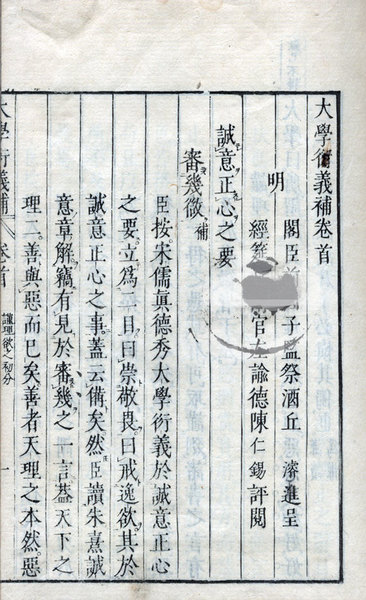 大學衍義補卷首
明
閣臣前子監祭酒丘濬進呈
經筵官左諭德陳仁錫評閱
誠意正心之要
審幾微補
臣按宋儒眞德秀大學衍義於誠意正心
之要立爲二目曰崇敬畏曰戒逸欲其於
誠意正心之事蓋云備矣然臣讀朱熹誠
意章解竊有見於審幾之一言蓋天下之
理二善與惡而已矣善者天理之本然惡
大學衍義補 卷首 謹理欲之初分 一